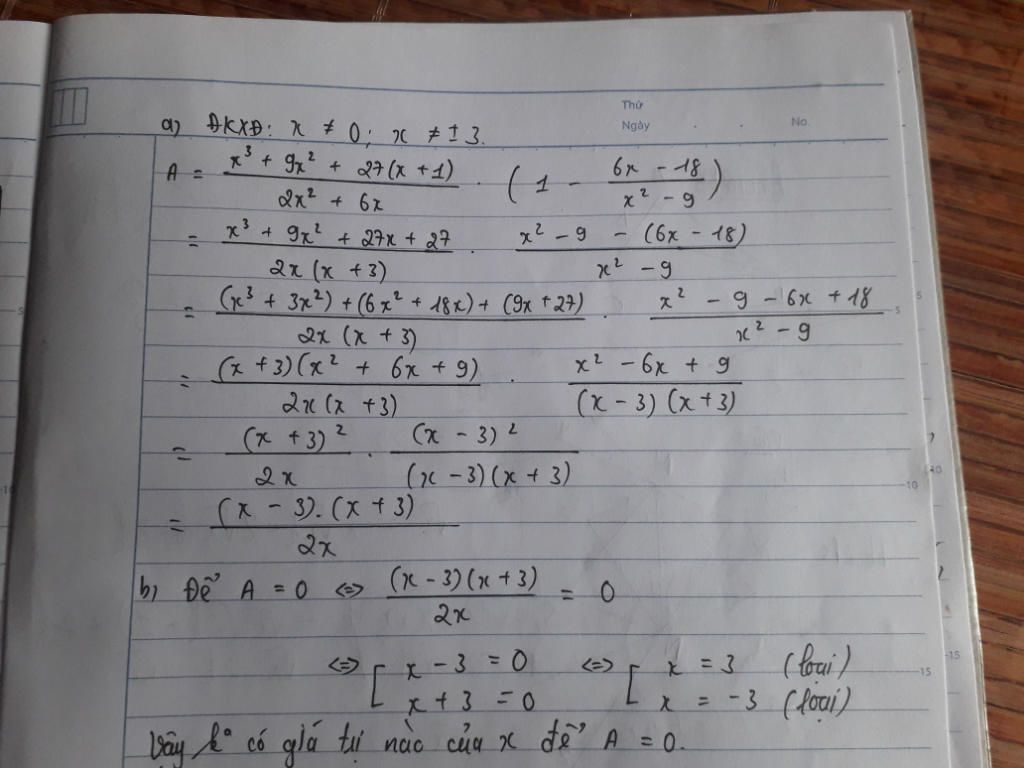 Thứ
Ngày . . No.
a) ĐKXĐ: x ≠ 0; x ≠ ± 3.
A = (x³ + 9x² + 27(x + 1))/(2x² + 6x) . (1 - (6x - 18)/(x² - 9))
= (x³ + 9x² + 27x + 27)/(2x(x + 3)) . (x² - 9 - (6x - 18))/(x² - 9)
= ((x³ + 3x²) + (6x² + 18x) + (9x + 27))/(2x(x + 3)) . (x² - 9 - 6x + 18)/(x² - 9)
= ((x + 3)(x² + 6x + 9))/(2x(x + 3)) . (x² - 6x + 9)/((x - 3)(x + 3))
= (x + 3)²/(2x) . (x - 3)²/((x - 3)(x + 3))
= ((x - 3).(x + 3))/(2x)
b) Để A = 0 <=> ((x - 3)(x + 3))/(2x) = 0
<=> [ x - 3 = 0 <=> [ x = 3 (loại)
x + 3 = 0 x = -3 (loại)
Vậy k° có giá trị nào của x để A = 0.
5
10
15
5
10
15